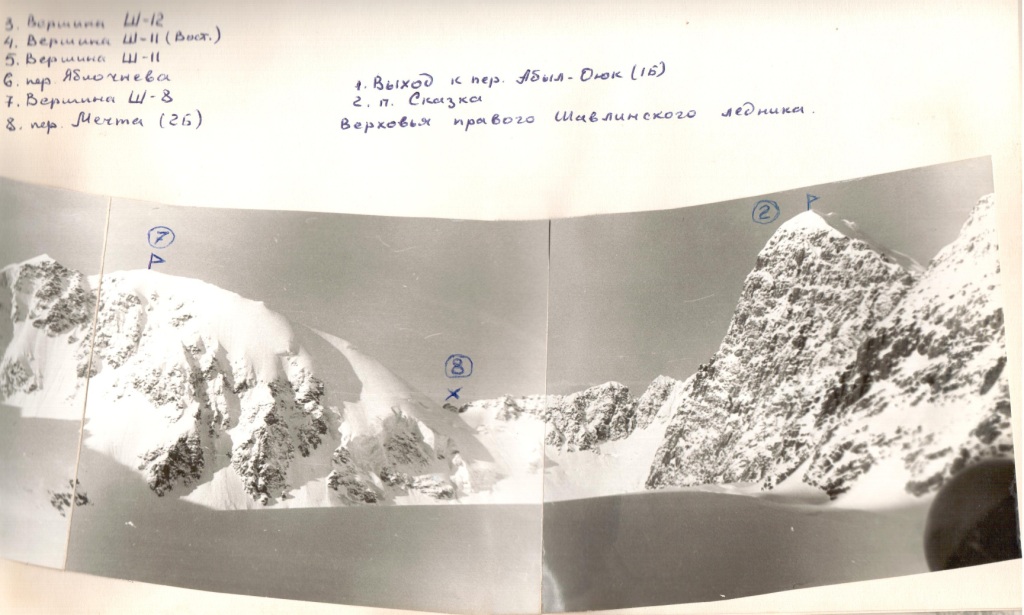 3. Вершина Ш-12
4. Вершина Ш-11 (Вост.)
5. Вершина Ш-11
6. пер. Яблочнева
7. Вершина Ш-8
8. пер. Мечта (2Б)
1. Выход к пер. Абыл-Оюк (1Б)
2. п. Сказка
Верховья правого Шавлинского ледника.
7
8
2